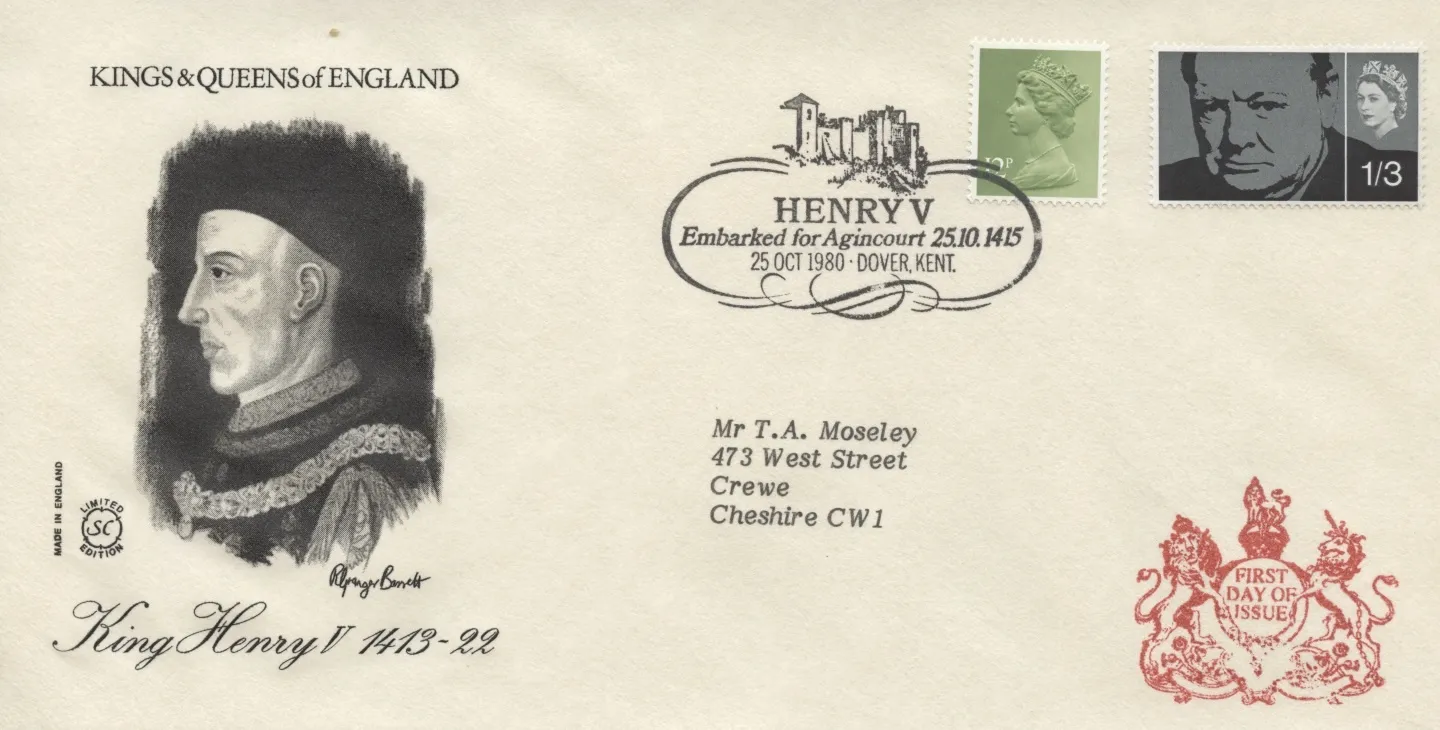 KINGS & QUEENS of ENGLAND
12P
1/3
HENRY V
Embarked for Agincourt 25.10.1415
25 OCT 1980 · DOVER, KENT.
Mr T.A. Moseley
473 West Street
Crewe
Cheshire CW1
MADE IN ENGLAND
LIMITED
SC
EDITION
King Henry V 1413-22
FIRST
DAY OF
ISSUE